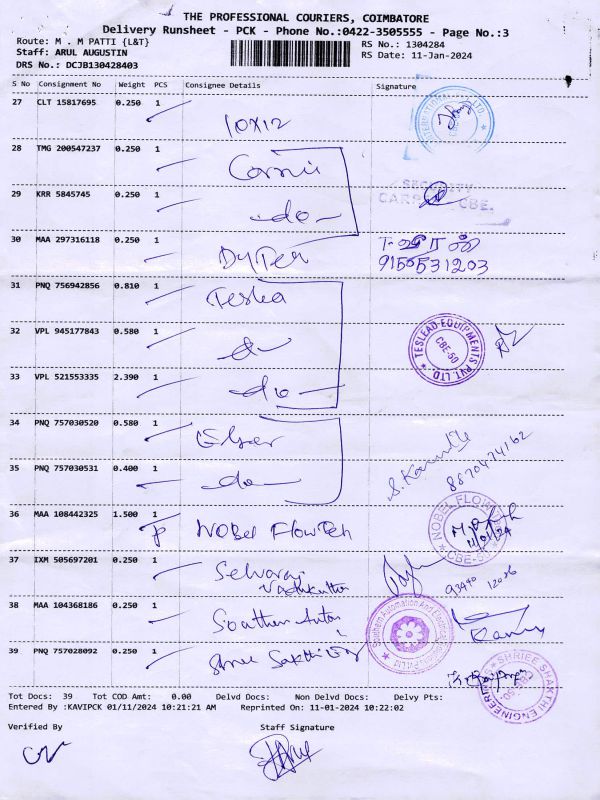 THE PROFESSIONAL COURIERS, COIMBATORE
Delivery Runsheet - PCK - Phone No.:0422-3505555 - Page No.:3
Route: M . M PATTI {L&T}
RS No.: 1304284
Staff: ARUL AUGUSTIN
RS Date: 11-Jan-2024
DRS No.: DCJB130428403
S No Consignment No Weight PCS Consignee Details Signature
27 CLT 15817695 0.250 1
10x12
28 TMG 200547237 0.250 1
29 KRR 5845745 0.250 1
-do-
SECURITY
CBE.
30 MAA 297316118 0.250 1
9150531203
31 PNQ 756942856 0.810 1
32 VPL 945177843 0.580 1
TESLEAD EQUIPMENTS PVT. LTD.
CBE-50
33 VPL 521553335 2.390 1
-do-
34 PNQ 757030520 0.580 1
35 PNQ 757030531 0.400 1
-do-
36 MAA 108442325 1.500 1
P Nobel FlowTech
NOBEL FLOW
CBE-50
37 IXM 505697201 0.250 1
Selvaraj
38 MAA 104368186 0.250 1
Southern Auto
Southern Automation And
39 PNQ 757028092 0.250 1
Shree Sakthi
SHRIEE SHAKTHI ENGINEERING
Tot Docs: 39 Tot COD Amt: 0.00 Delvd Docs: Non Delvd Docs: Delvy Pts:
Entered By :KAVIPCK 01/11/2024 10:21:21 AM Reprinted On: 11-01-2024 10:22:02
Verified By Staff Signature